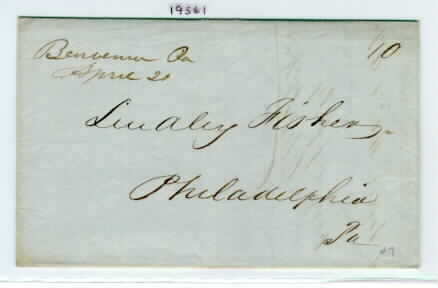 19561
Benvenue Pa
April 21
10
Lindley Fisher
Philadelphia
Pa